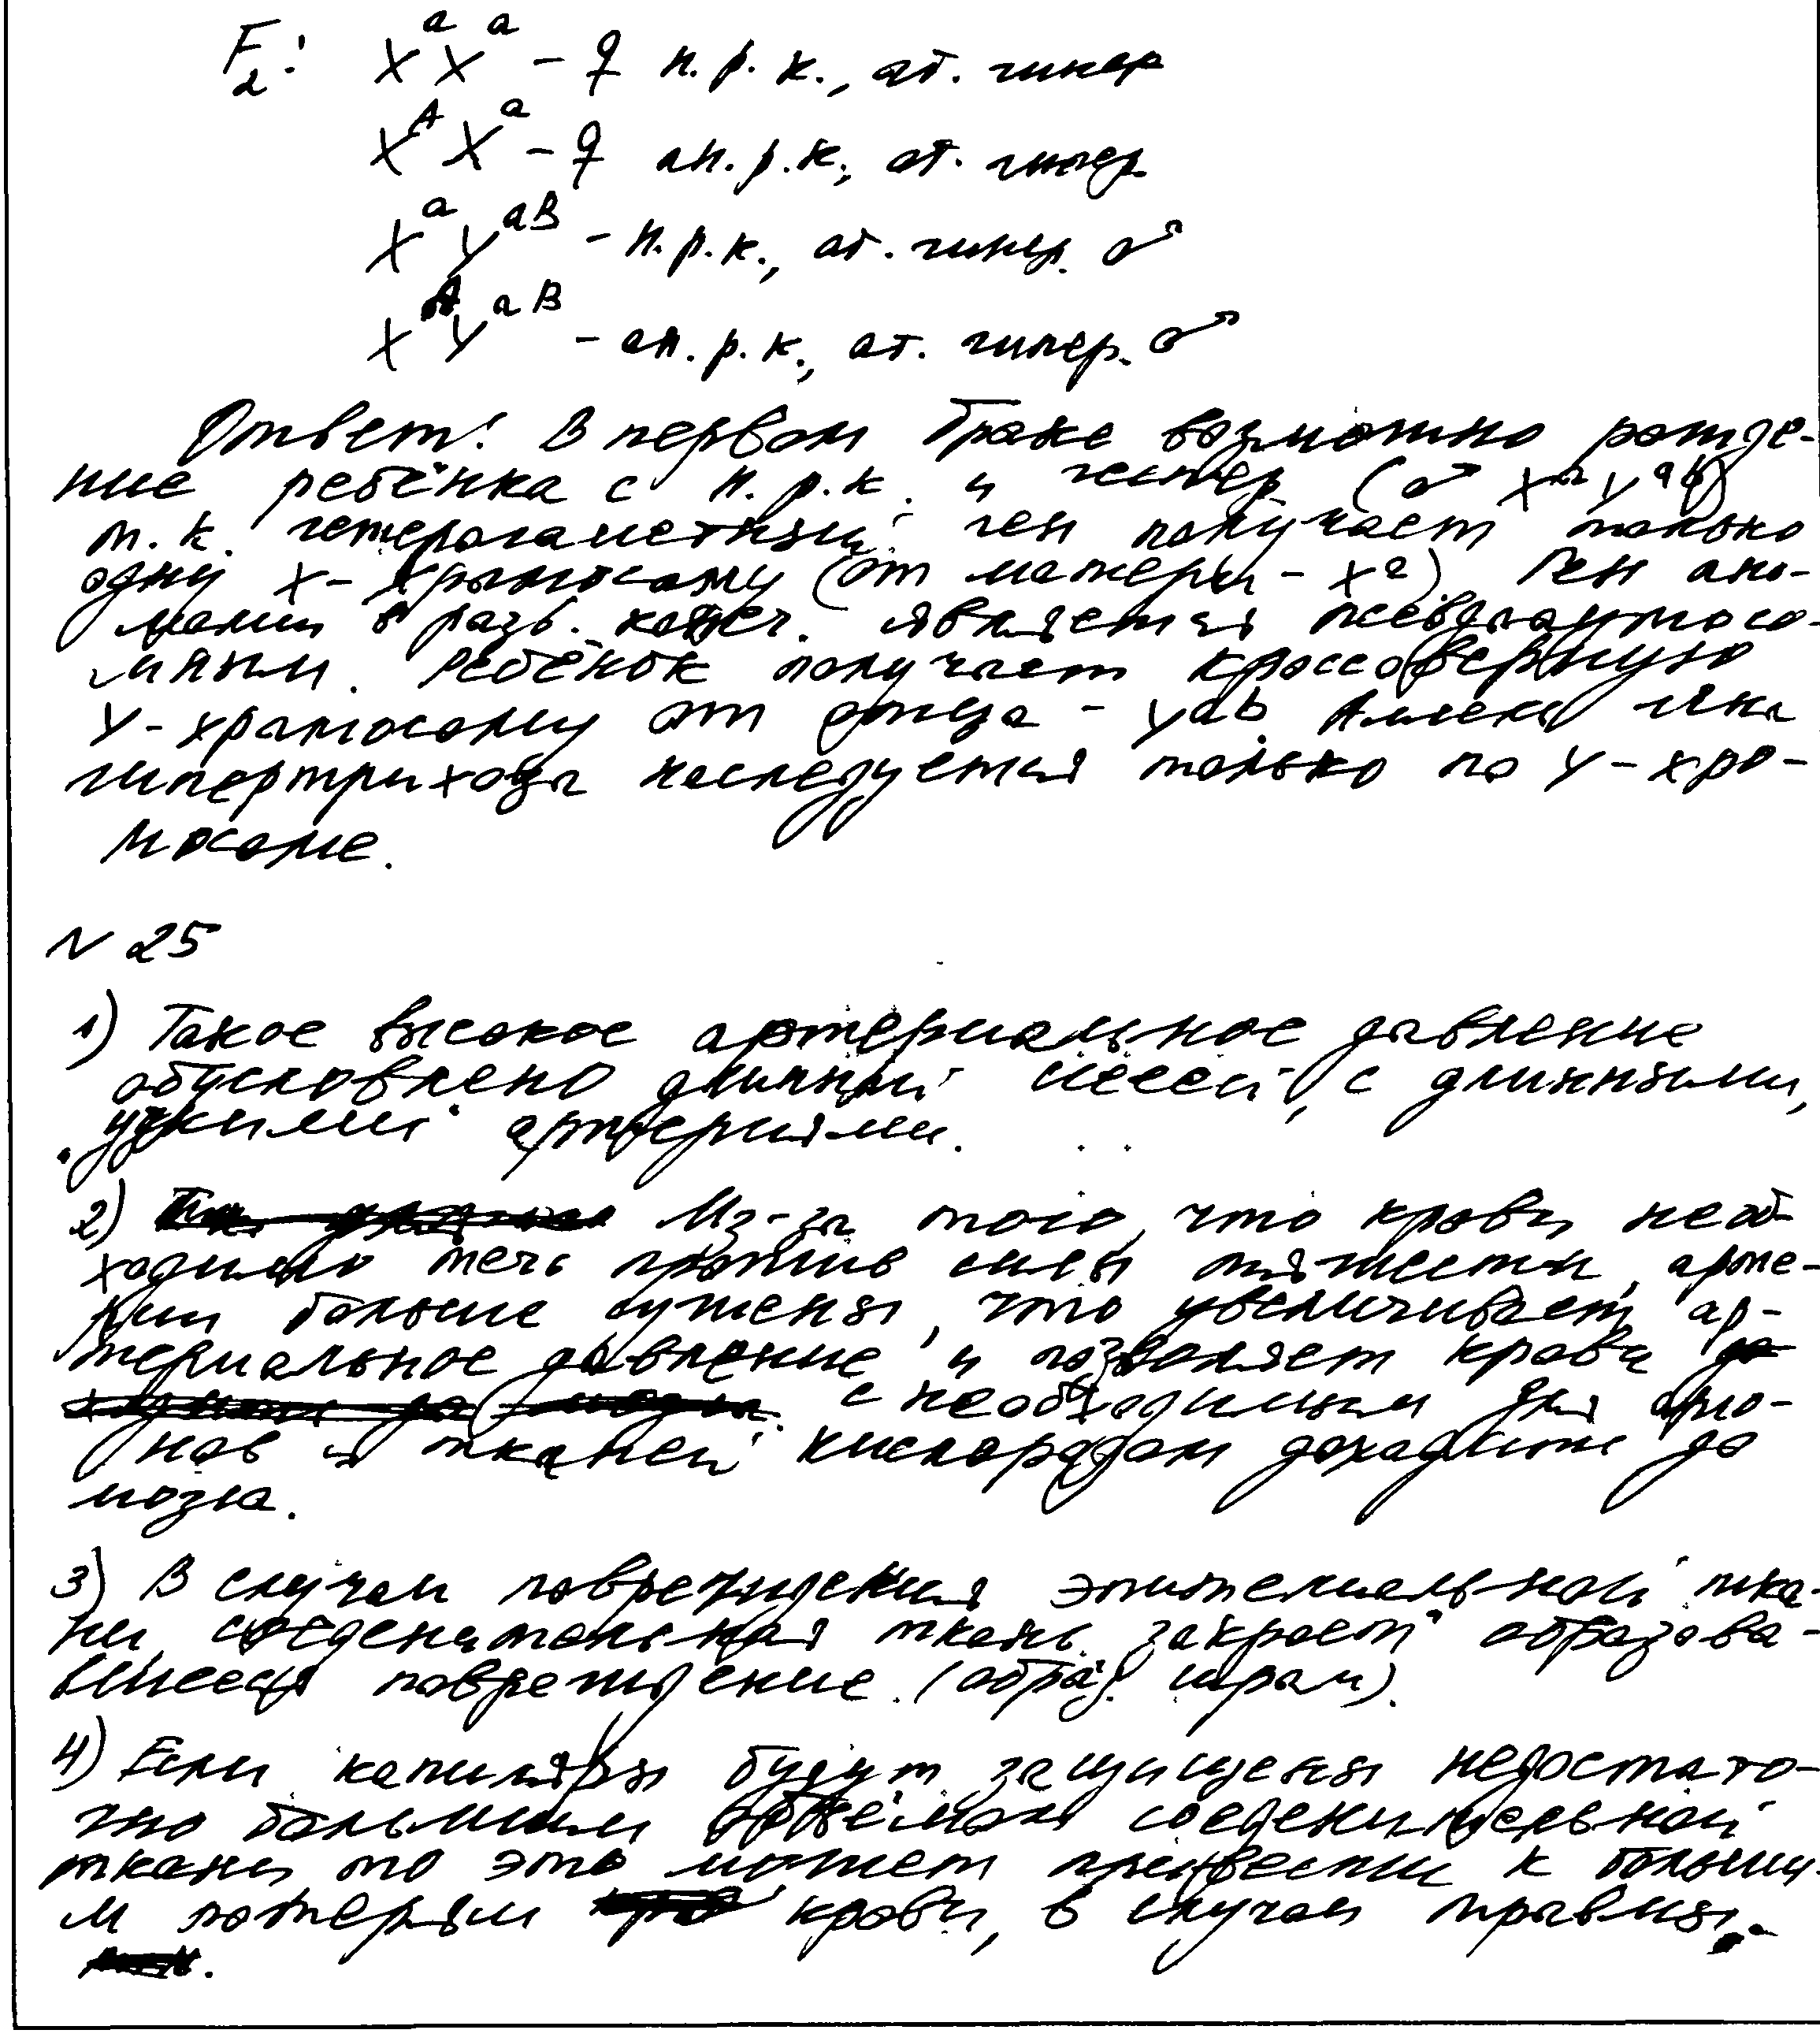 F₂: XᵃXᵃ - ♀ н.р.к., от. гипер
XᴬXᵃ - ♀ ан.р.к., от. гипер.
XᵃYᵃᴮ - н.р.к., от. гипер. ♂
XᴬYᵃᴮ - ан.р.к., от. гипер. ♂
Ответ: В первом браке возможно рожде-
ние ребёнка с н.р.к. и гипер. (♂ XᵃYᵃᵇ)
т.к. гетерогаметный ген получает только
одну X-хромосому (от матери - Xᵃ) Ген ано-
малии в разв. конеч. является псевдоаутосо-
мным. Ребёнок получает кроссоверную
Y-хромосому от отца - Yᵃᵇ. Аллель
гипертрихоза наследуется только по Y-хро-
мосоме.
N 25
1) Такое высокое артериальное давление
обусловлено длинной шеей, с длинными,
узкими артериями.
2) Из-за того, что крови необ-
ходимо течь против силы тяжести, арте-
рии больше сужены, что увеличивает ар-
териальное давление и позволяет крови
с необходимым для орга-
нов и тканей кислородом доходить до
мозга.
3) В случаи повреждения эпителиальной тка-
ни, соеденительная ткань закроет образова-
вшееся повреждение (образ. шрам).
4) Если капиляры будут защищены недостато-
чно большим объёмом соеденительной
ткани то это может привести к больши-
м потерям крови, в случаи травмы.